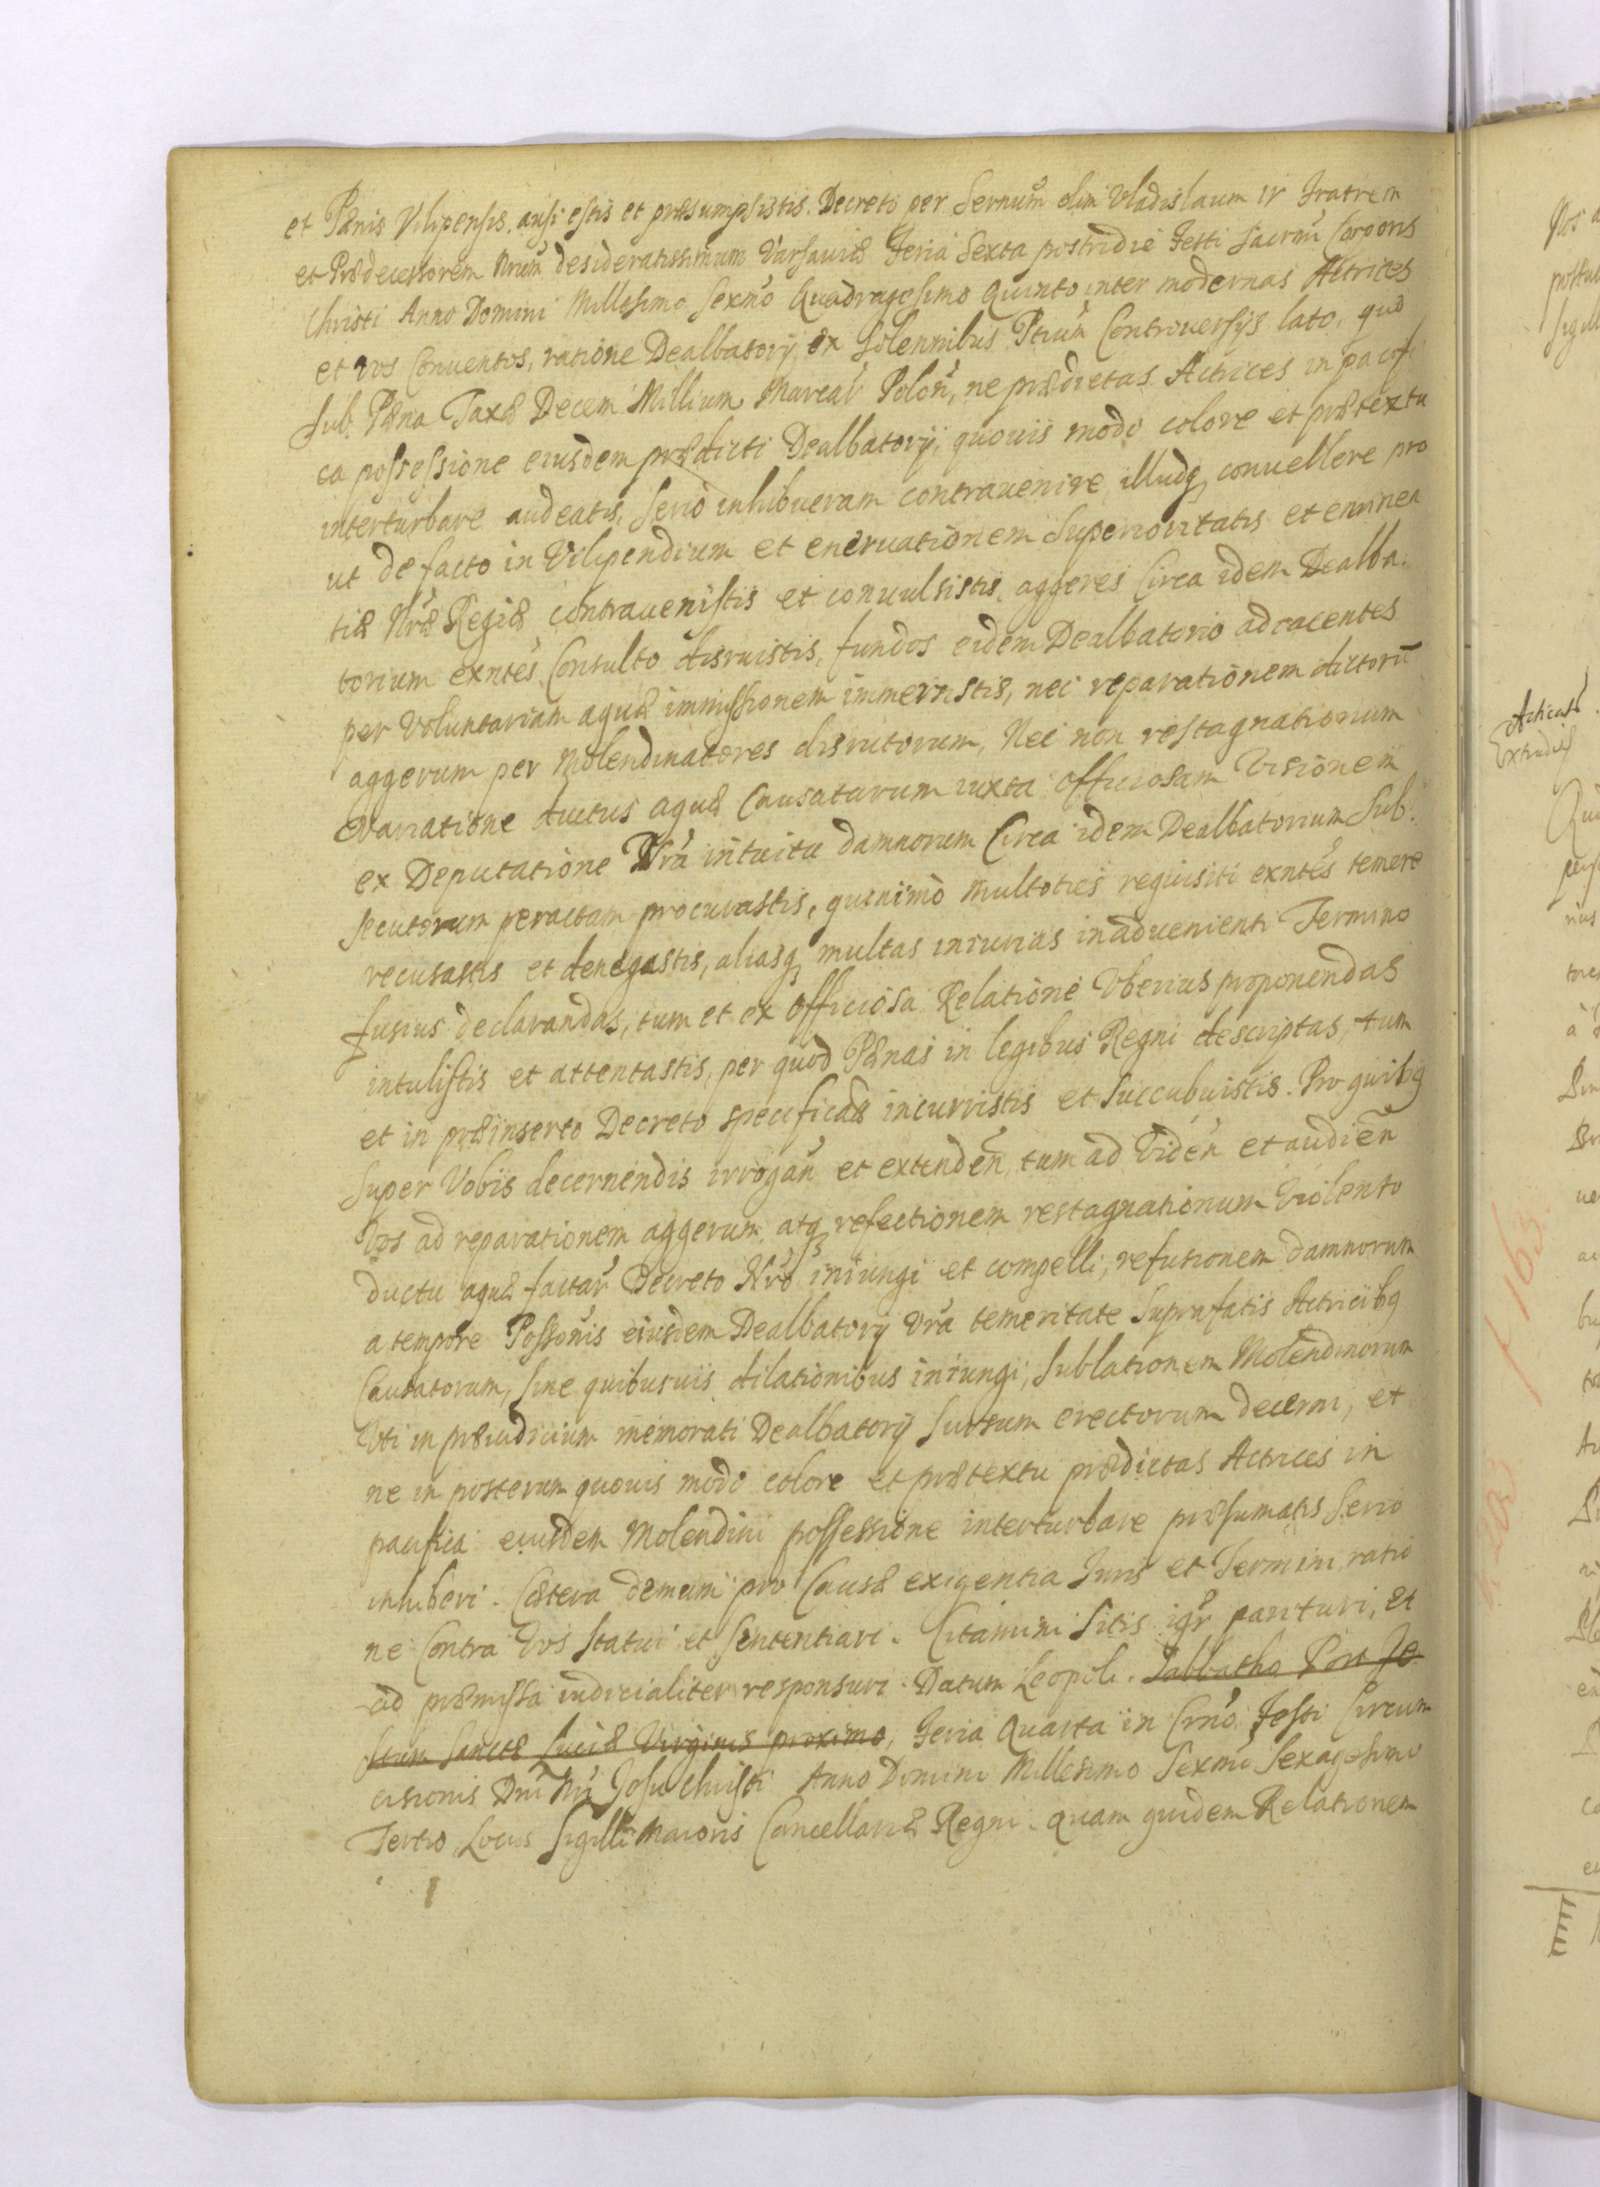 et Pænis Vilipensis, ausi estis et præsumpsistis. Decreto per Sernum̃ olim Vladislaum IV Fratrem
et Prædecessorem Nrum̃ desideratissimum Varsauiæ Feria Sexta postridie Festi Sacrmi Corporis
Christi Anno Domini Millesimo Sexmo Quadragesimo Quinto inter modernas Actrices
et vos Conuentos, ratione Dealbatorij ex Solennibus Ptium̃ Controuersijs lato, quo
sub Pæna Taxæ Decem Millium Marcar̃ Polon̄, ne prædictas Actrices in pacifi
ca possessione eiusdem prædicti Dealbatorij, quouis modo colore et prætextu
interturbare audeatis, serio inhibueram contrauenire illudq conuellere pro
ut de facto in Vilipendium et eneruationem Superioritatis et eminen
tiæ Nræ Regiæ contrauenistis et conuulsistis, aggeres Circa idem Dealba
torium exntes Consulto disruistis, fundos eidem Dealbatorio adiacentes
per voluntariam aquæ immissionem immersistis, nec reparationem dictorū
aggerum per Molendinatores disrutorum, Nec non restagnationum
variatione ductus aquæ Causatarum iuxta officiosam Visionem
ex Deputatione Nra intuitu damnorum Circa idem Dealbatorium Sub
secutorum peractam procurastis, quinimo multoties requisiti exntes temere
recusastis et denegastis, aliasq multas iniurias in aduenienti Termino
fusius declarandas, tum et ex officiosa Relatione Vberius proponendas
intulistis et attentastis, per quod Pænas in legibus Regni descriptas, tum
et in præinserto Decreto specificas incurristis et Succubuistis. Pro quibq
super Vobis decernendis irrogan̄ et extenden̄, tum ad Viden̄ et audien̄
Vos ad reparationem aggerum, atq refectionem restagnationum Violento
ductu aquæ factar̃ Decreto Nro iniungi et compelli, refusionem damnorum
a tempore Possonis eiusdem Dealbatorij Vra temeritate Suprafatis Actricibq
Causatorum, sine quibusuis dilationibus iniungi, Sublationem Molendinorum
Vti in præiudicium memorati Dealbatorij sursum erectorum decerni, et
ne in posterum quouis modo colore et prætextu prædictas Actrices in
pacifica eiusdem Molendini possessione interturbare præsumatis serio
inhiberi. Cætera demum pro Causæ exigentia Juris et Termini ratio
ne Contra Vos statui et sententiari. Citamini sitis igr̃ parituri, et
ad præmissa iudicialiter responsuri. Datum Leopoli. Sabbatho Post Fe
stum Sanctæ Luciæ Virginis proximo, Feria Quarta in Crno Festi Circum
cisionis Dni Nri Jesu Christi Anno Domini Millesimo Sexmo Sexagesimo
Tertio Locus Sigilli Maioris Cancellariæ Regni. Quam quidem Relationem
Acticat
Extradit